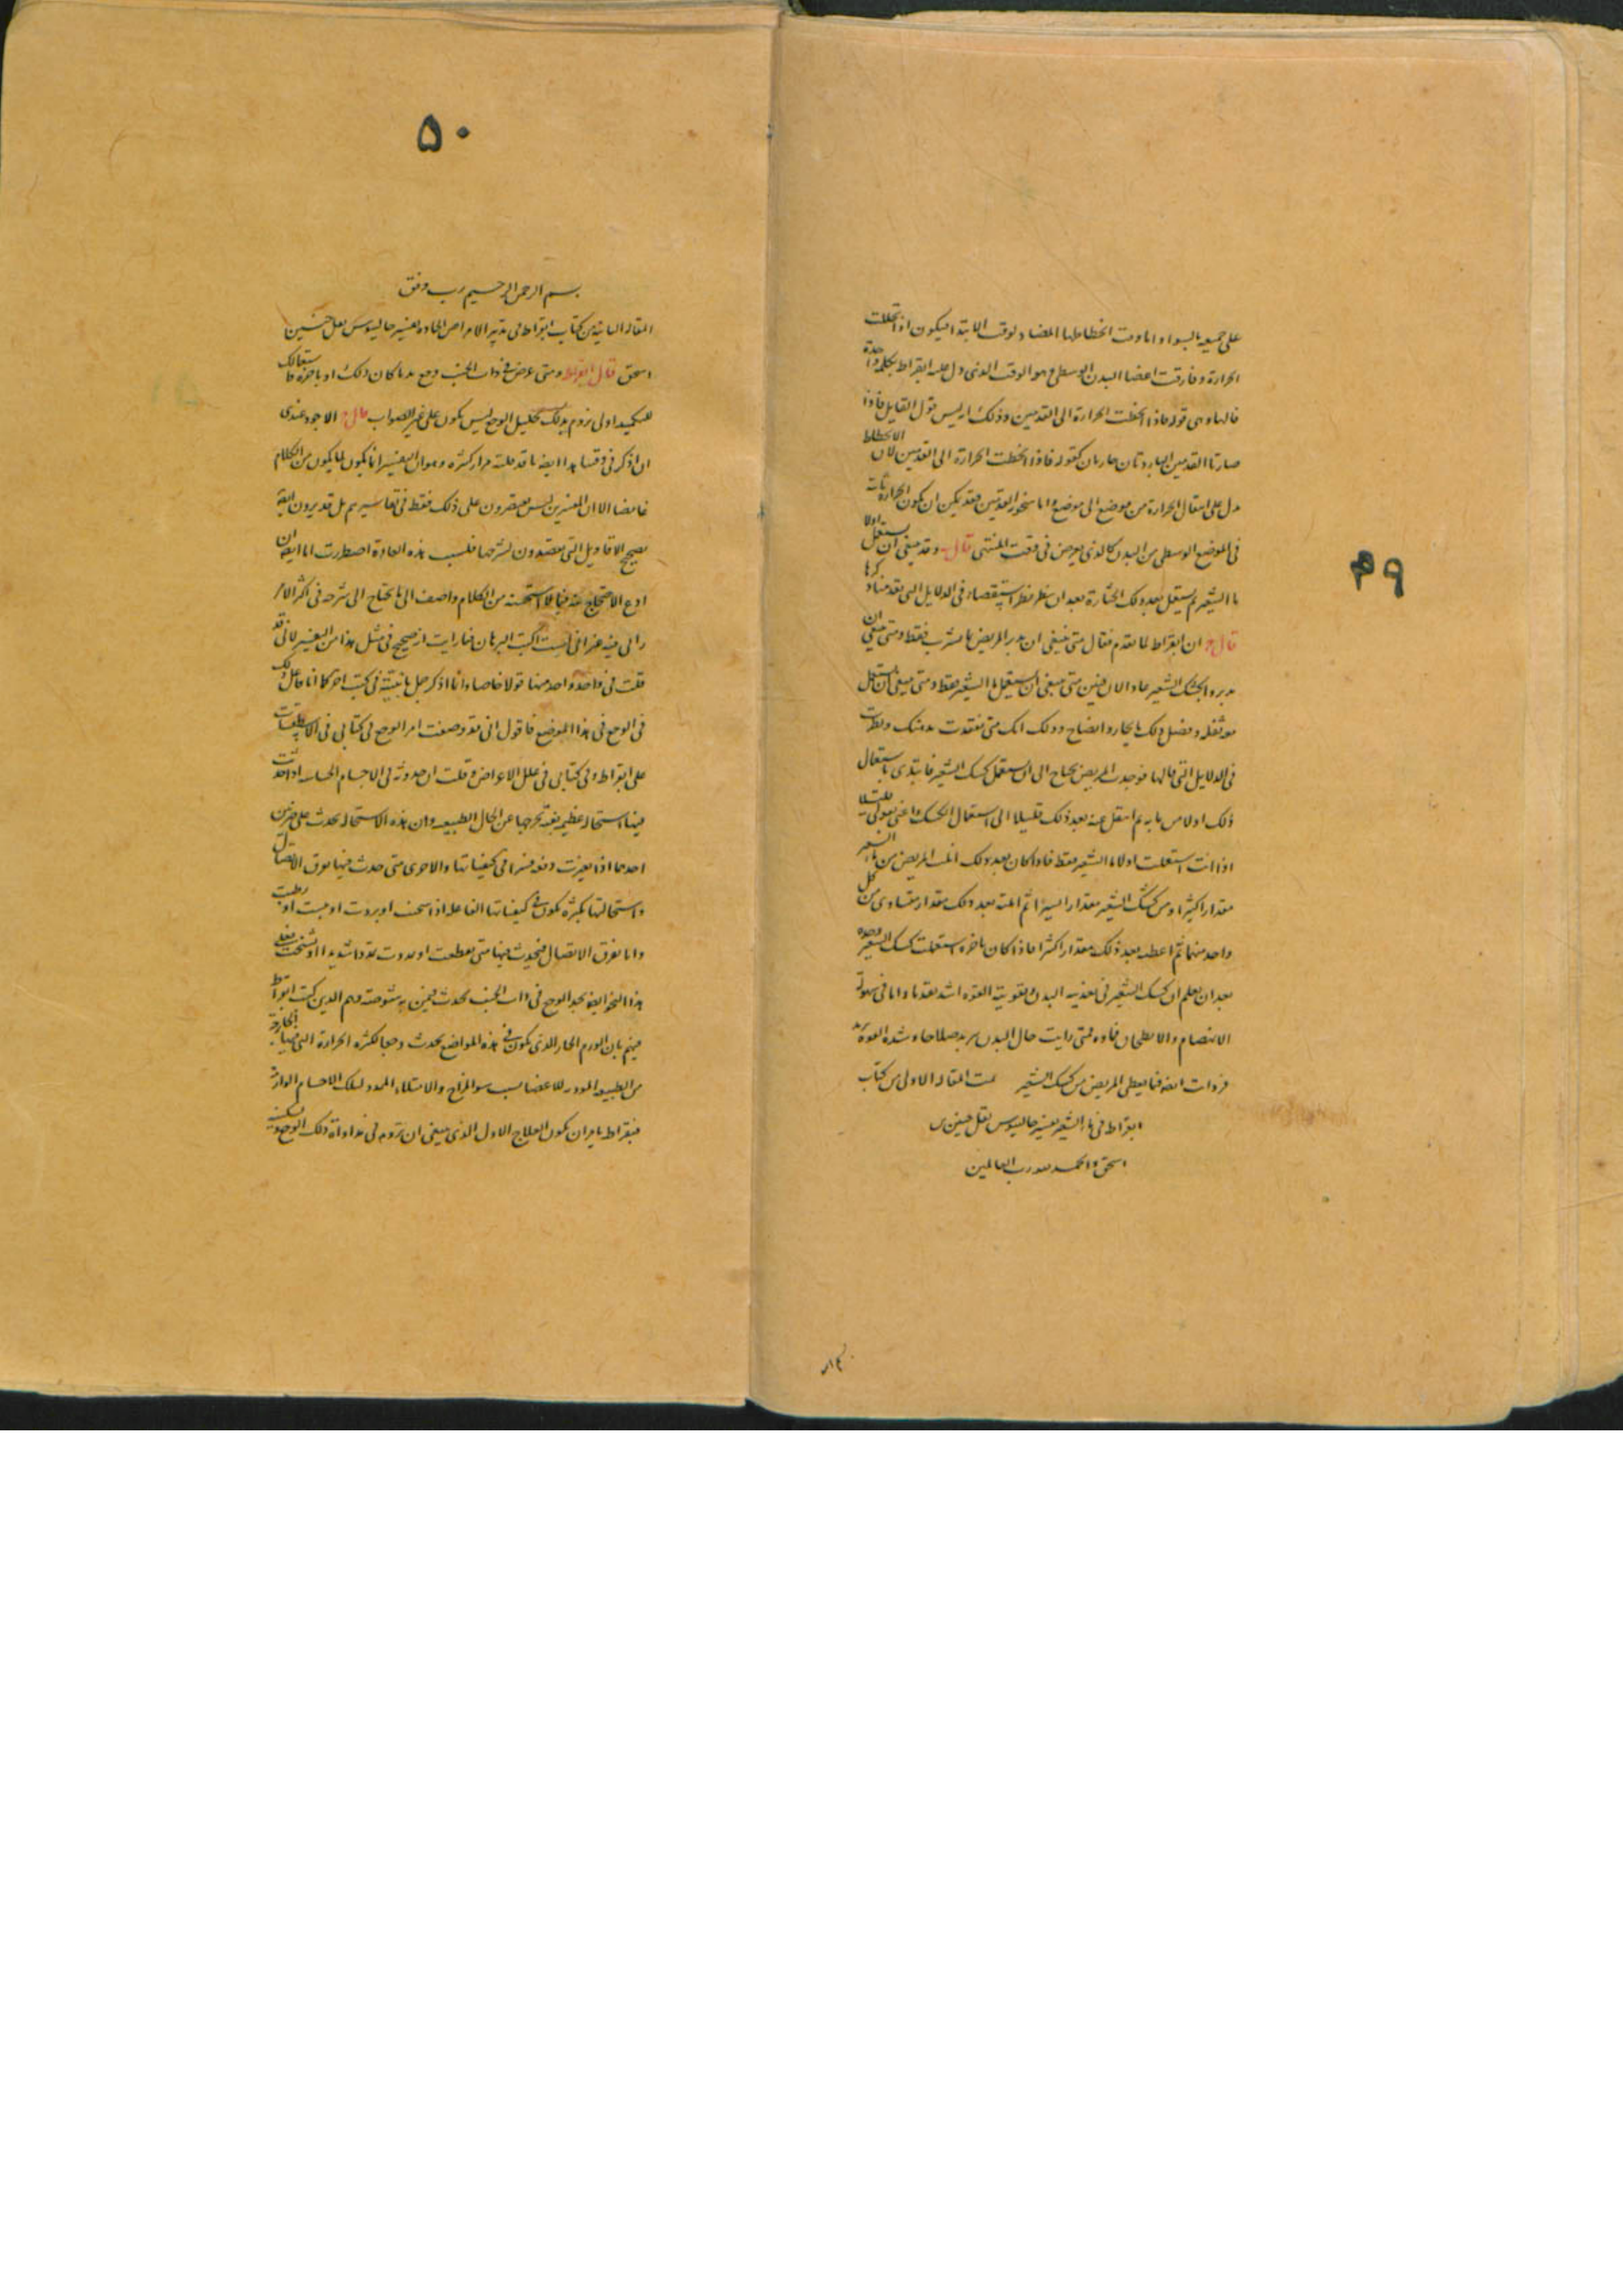 ٤٩
على جميعه بالسواء واما وقت انحطاطها المضاد لوقت الابتدا فيكون اذا تحللت
الحرارة وفارقت اعضا البدن الوسطى وهو الوقت الذى دل عليه ابقراط بكلمة واحدة
قالها وهى قوله فاذا انحطت الحرارة الى القدمين وذلك انه ليس قول القايل فاذا
صارتا القدمين الباردتان حارتان كقوله فاذا انحطت الحرارة الى القدمين لان الانحطاط
يدل على انتقال الحرارة من موضع الى موضع واما سخونة القدمين فقد يمكن ان يكون الحرارة ثابتة
فى الموضع الوسطى من البدن كالذى يعرض فى وقت المنتهى قال وقد ينبغى ان يستعمل اولا
ما الشعير ثم يستعمل بعد ذلك الحثارة بعد ان ينظر نظر استقصاء فى الدلايل التى تقدمنا وذكرها
قال ج ان ابقراط لما تقدم فقال متى ينبغى ان يدبر المريض بما يشرب فقط ومتى ينبغى ان
يدبره بكشك الشعير عاد الان فبين متى ينبغى ان يستعمل ماء الشعير فقط ومتى ينبغى ان يستعمل
مع ثفله وفصل ذلك بايجاز وايضاح وذلك انك متى تفقدت بدهنك ونظرت
فى الدلايل التى قالها فوجدت المريض يحتاج الى ان يستعمل كشك الشعير فابتدى باستعمال
ذلك اولا من مايه ثم انتقل عنه بعد ذلك قليلا قليلا الى استعمال الكشك واعنى بقولى
اذا انت استعملت اولا ماء الشعير فقط فاذا كان بعد ذلك انلت المريض من ماء الشعير
مقدارا كثيرا ومن كشك الشعير مقدارا يسيرا ثم انلته بعد ذلك مقدار متساوى من كل
واحد منهما ثم اعطه بعد ذلك مقدارا كثيرا فاذا كان باخره استعملت كشك الشعير وحده
بعد ان تعلم ان كشك الشعير فى تغذيه البدن وتقويته القوه اشد تقدما واما فى سهولة
الانهضام والانطحان فدونه فمتى رايت حال البدن يريد صلاحا وشدة القوة تزيد
فزدت ايضا فيما يعطى المريض من كشك الشعير تمت المقاله الاولى من كتاب
ابقراط فى ماء الشعير تفسير جالينوس نقل حنين بن
اسحق والحمد لله رب العالمين
٥٠
بسم الله الرحمن الرحيم رب وفق
المقاله الثانيه من كتاب ابقراط فى تدبير الامراض الحاده تفسير جالينوس نقل حنين
اسحق قال ابقراط ومتى عرض فى ذات الجنب وجع بديا كان ذلك او باخره فاستعمالك
للتكميد اولى تروم بذلك تحليل الوجع ليس يكون على غير الصواب قال ج الاجود عندى
ان اذكر فى وقتنا هذا ايضا ما قد قلته مرار كثيره وهو ان التفسير انما يكون لما يكون من الكلام
غامضا الا ان المفسرين ليس يقتصرون على ذلك فقط فى تفاسيرهم بل قد يرون ايضا
تصحيح الاقاويل التى يقصدون لشرحها فبسبب هذه العادة اضطررت انا ايضا ان
ادع الاحتجاج عنه فيما لا استحسنه من الكلام واصف الى ما يحتاج الى شرحه فى اكثر الامر
راى فيه غير انى لست اكتب البرهان فيما رايت انه صحيح فى مثل هذا من التفسير لانى قد
قلت فى واحد واحد منها قولا خاصا وانا اذكر جمل ما بينته فى كتب اخر كما انا فاعل ذلك
فى الوجع فى هذا الموضع فاقول انى قد وصفت امر الوجع فى كتابى فى الاسطقسات
على ابقراط وفى كتابى فى علل الاعراض وقلت ان حدوثه فى الاجسام الحساسه اذا حدثت
فيها استحاله عظيمه بغته تخرجها عن الحال الطبيعيه وان هذه الاستحاله تحدث على ضربين
احدهما اذا تغيرت دفعه قسرا فى كيفياتها والاخرى متى حدث فيها تفرق الاتصال
واستحالتها بكثره تكون فى كيفياتها الفاعله اذا سخنت او بردت او يبست او رطبت
واما تفرق الاتصال فيحدث فيها متى تقطعت او تمددت تمددا شديدا او تشنجت فعلى
هذا النحو ايضا يجد الوجع فى ذات الجنب يحدث فيمن به شوصة وهم الذين كتب ابقراط
فيهم بان الورم الحار الذى يكون فى هذه المواضع يحدث وجعا لكثره الحرارة التى فيها الخارجة
من الطبيعيه المولده للاعضا بسبب سو المزاج والامتلاء الممدد لتلك الاجسام الوارمة
فبقراط يامر ان يكون العلاج الاول الذى ينبغى ان ترومه فى مداواة ذلك الوجع وتسكينه